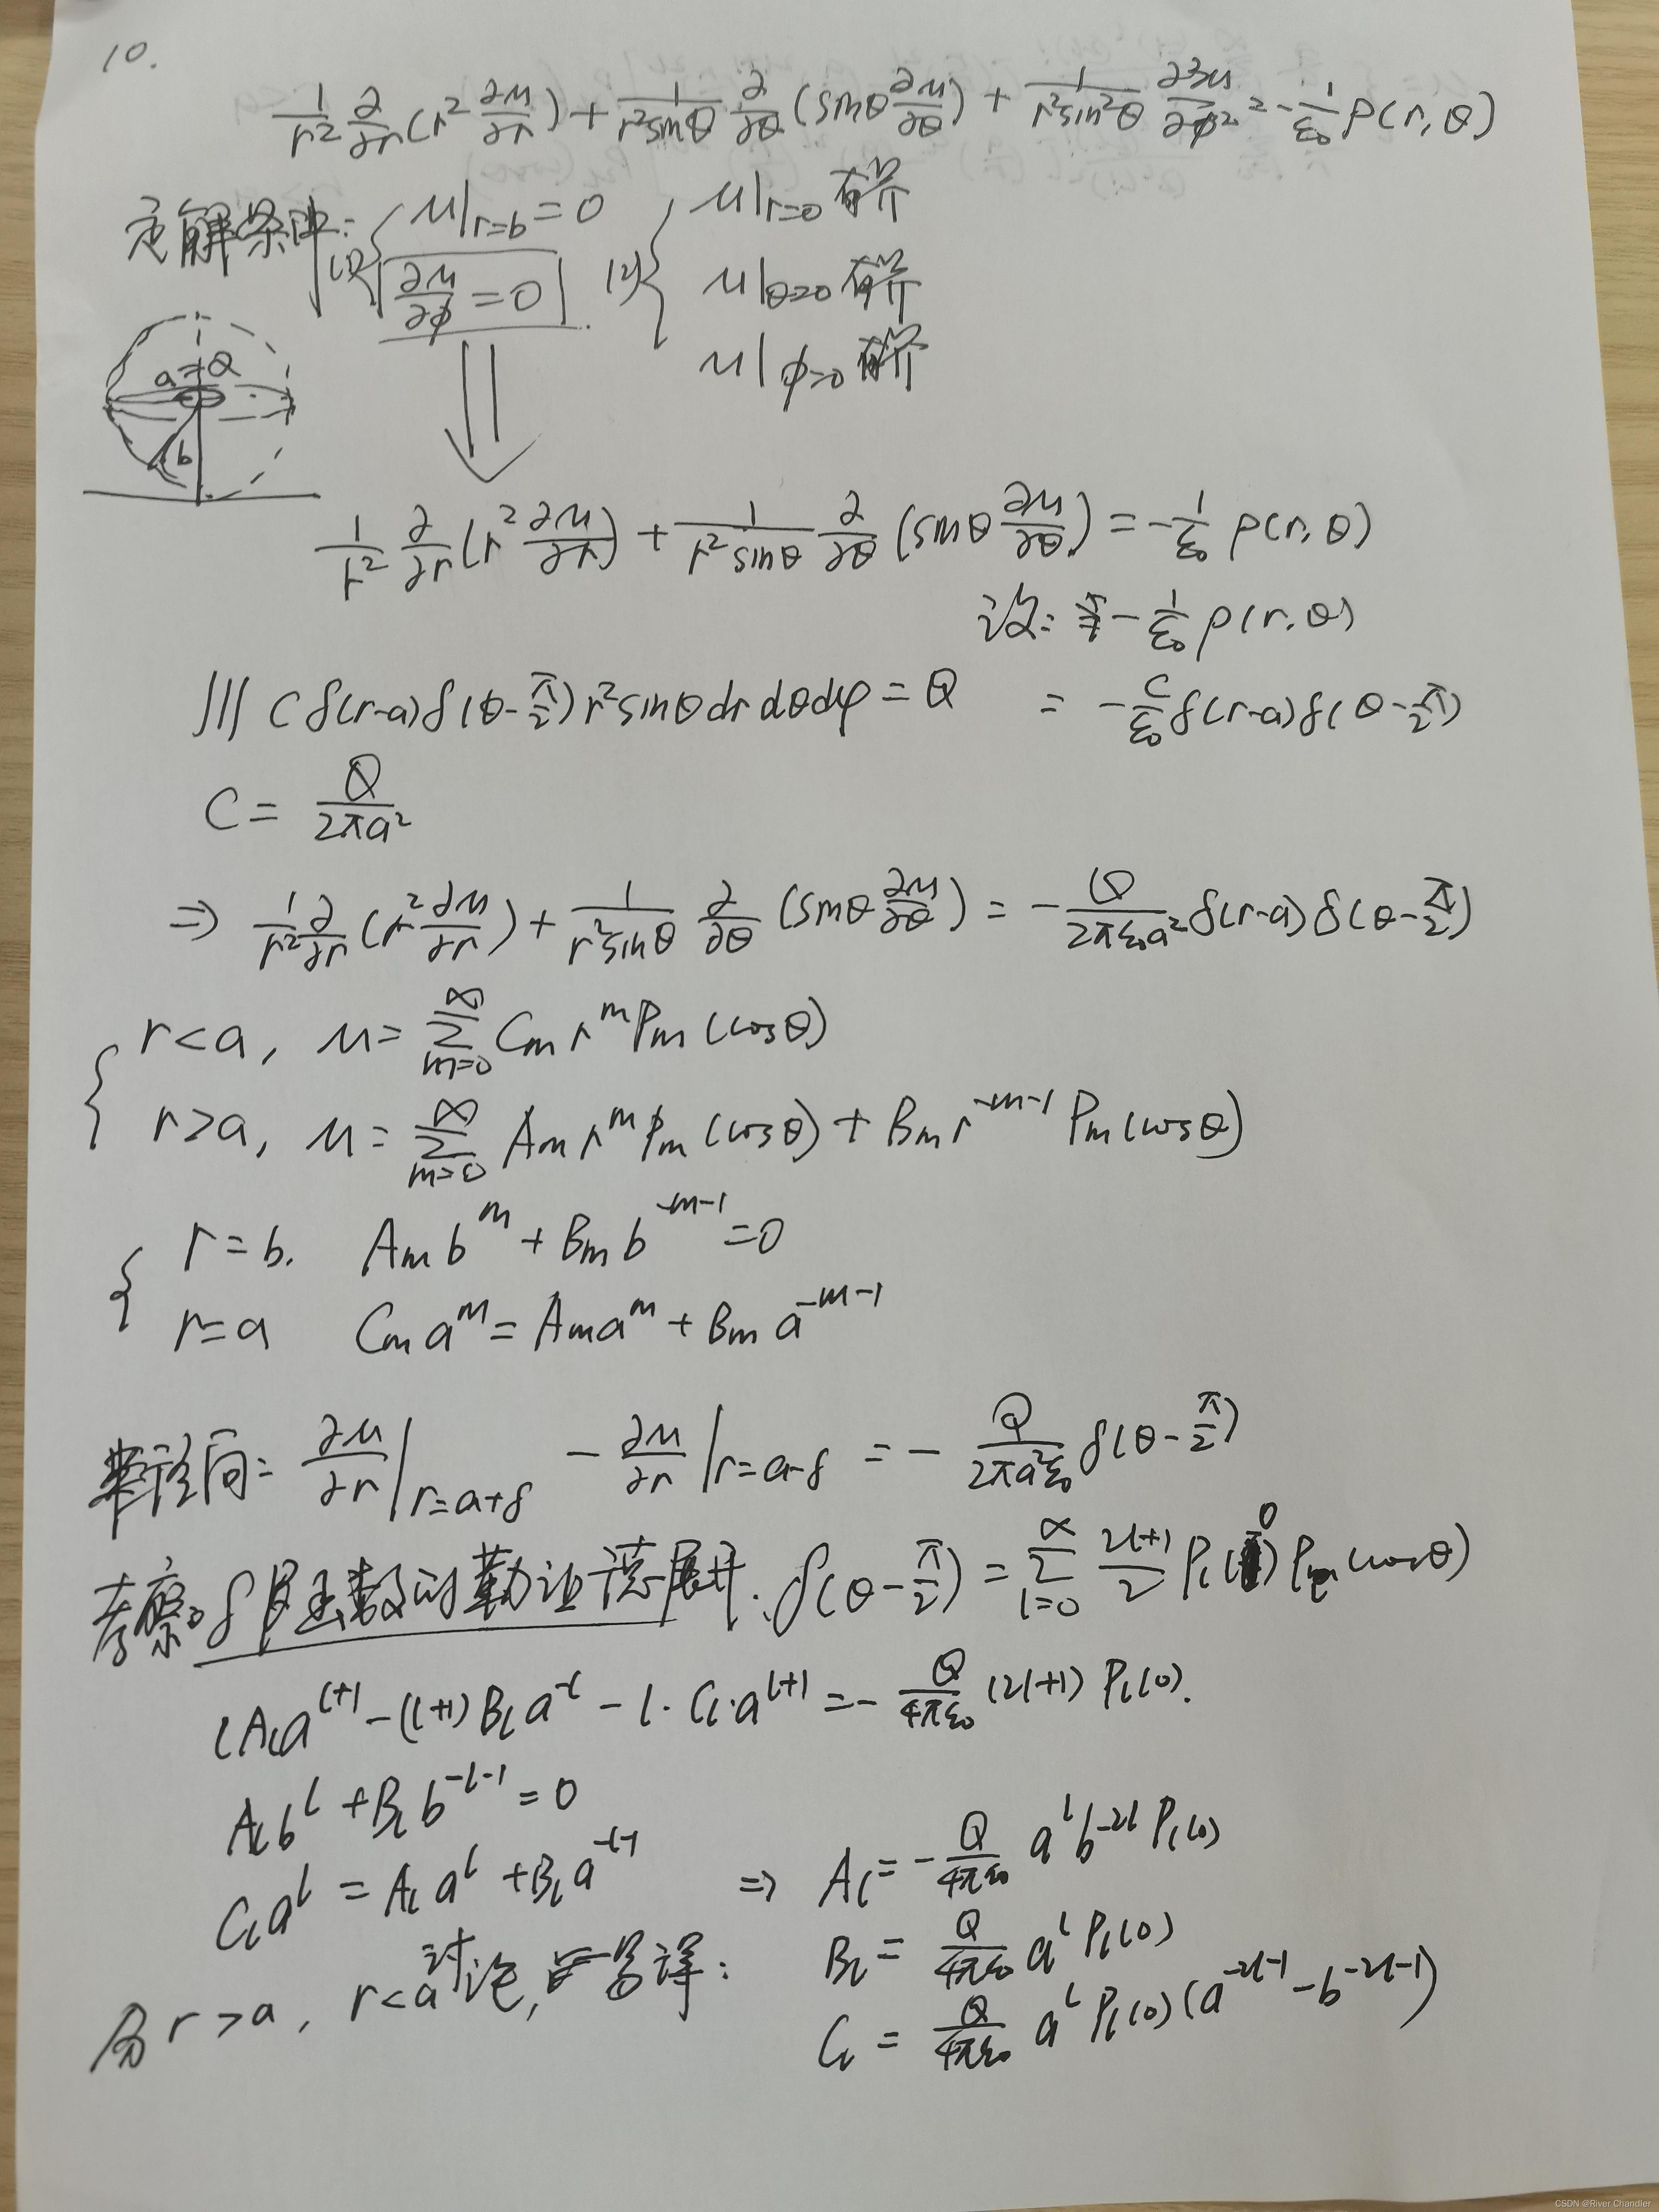 10.
1/r² ∂/∂r(r² ∂u/∂r) + 1/(r²sinθ) ∂/∂θ(sinθ ∂u/∂θ) + 1/(r²sin²θ) ∂²u/∂φ² = -1/ε₀ ρ(r,θ)
定解条件: (1){ u|r=b = 0 (2){ u|r=0 有界
∂u/∂φ = 0 u|θ=0 有界
u|φ=0 有界
a Q
b
1/r² ∂/∂r(r² ∂u/∂r) + 1/(r²sinθ) ∂/∂θ(sinθ ∂u/∂θ) = -1/ε₀ ρ(r,θ)
设: -1/ε₀ ρ(r,θ)
∭ C δ(r-a)δ(θ-π/2)r²sinθdrdθdφ = Q = -C/ε₀ δ(r-a)δ(θ-π/2)
C = Q/(2πa²)
⇒ 1/r² ∂/∂r(r² ∂u/∂r) + 1/(r²sinθ) ∂/∂θ(sinθ ∂u/∂θ) = -Q/(2πε₀a²) δ(r-a)δ(θ-π/2)
{ r<a, u = ∑_{m=0}^{∞} Cm r^m Pm(cosθ)
r>a, u = ∑_{m=0}^{∞} Am r^m Pm(cosθ) + Bm r^{-m-1} Pm(cosθ)
{ r=b. Am b^m + Bm b^{-m-1} = 0
r=a Cm a^m = Am a^m + Bm a^{-m-1}
径向: ∂u/∂r|r=a+δ - ∂u/∂r|r=a-δ = -Q/(2πa²ε₀) δ(θ-π/2)
考察 δ 函数的勒让德展开. δ(θ-π/2) = ∑_{l=0}^{∞} (2l+1)/2 Pl(0) Pl(cosθ)
lAl a^{l+1} - (l+1)Bl a^{-l} - l·Cl·a^{l+1} = -Q/(4πε₀) (2l+1) Pl(0).
Al b^l + Bl b^{-l-1} = 0
Cl a^l = Al a^l + Bl a^{-l-1} ⇒ Al = -Q/(4πε₀) a^l b^{-2l} Pl(0)
Bl = Q/(4πε₀) a^l Pl(0)
分 r>a, r<a 讨论, 易得: Cl = Q/(4πε₀) a^l Pl(0)(a^{-2l-1} - b^{-2l-1})
CSDN @River Chandler